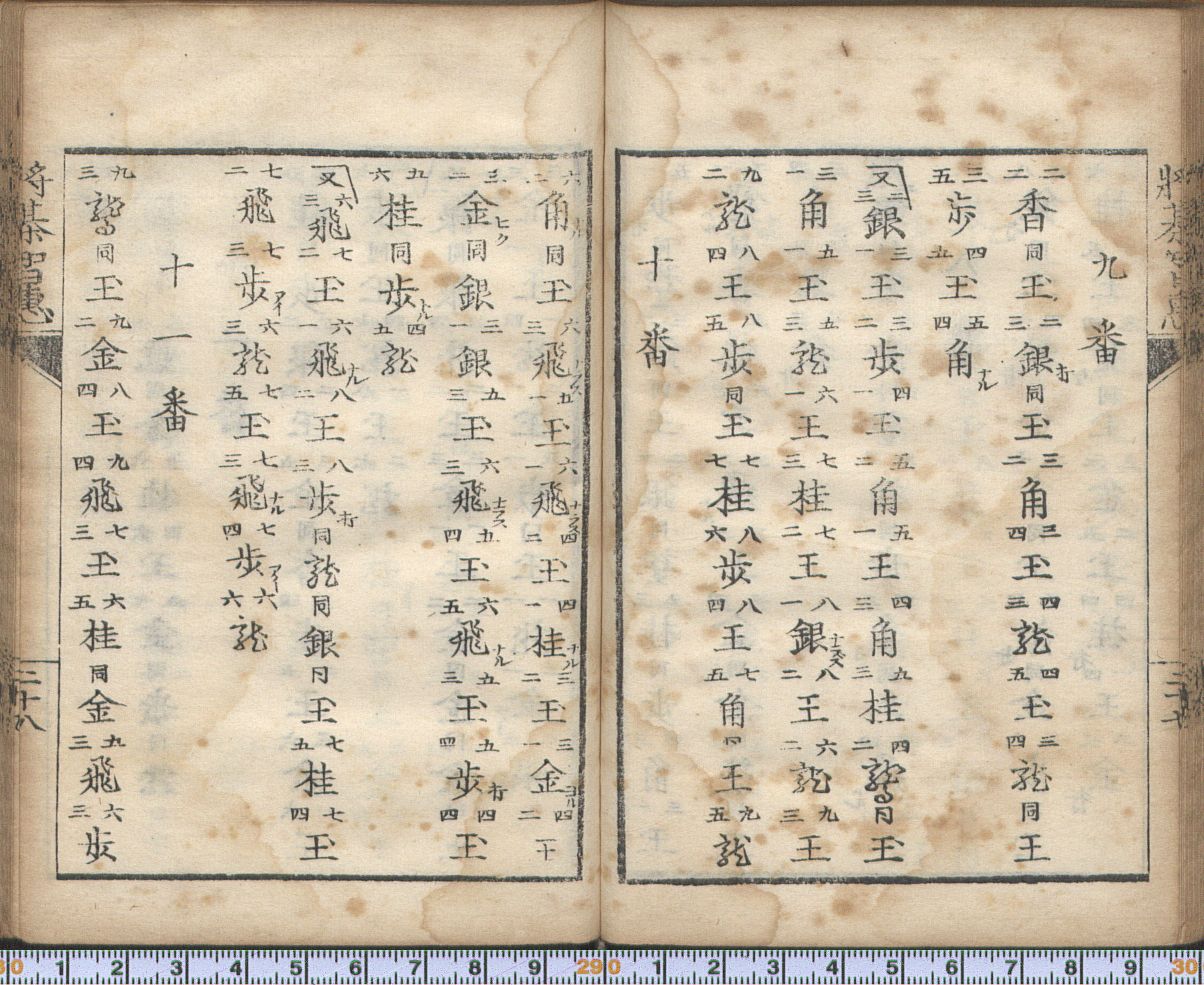 九番
二二香同王二三銀打同王三二角三四王四三龍四五王三四龍同王
三五歩四五王五四角ナル
又二三銀一一王三二歩四一王五二角五一王四三角九三桂四二 同王
三一角五一王五三龍六一王七三桂七二王八一銀ナラズ八二王六二龍九三王
九二龍八四王八五歩同王七七桂八六歩八四王七五角同王九五龍
十番
六二角ナル同王六三飛ナラズ五一王六一飛ナラズ四二王四一桂ナル三二王三一金ヨル四二
三二金ヒク同銀三一銀五三王六三飛ナラズ五四王六五飛ナル五三王五四歩打四四王
五六桂同歩四五龍
又六三飛七二王六一飛ナル八二王八三歩打同龍同銀同王七五桂七四王
七二飛七三歩アイ六三龍七五王七三飛ナル七四歩アイ六六龍
十一番
九三 同王九二金八四王九四飛七三王六五桂同金九三飛六三歩
二十八